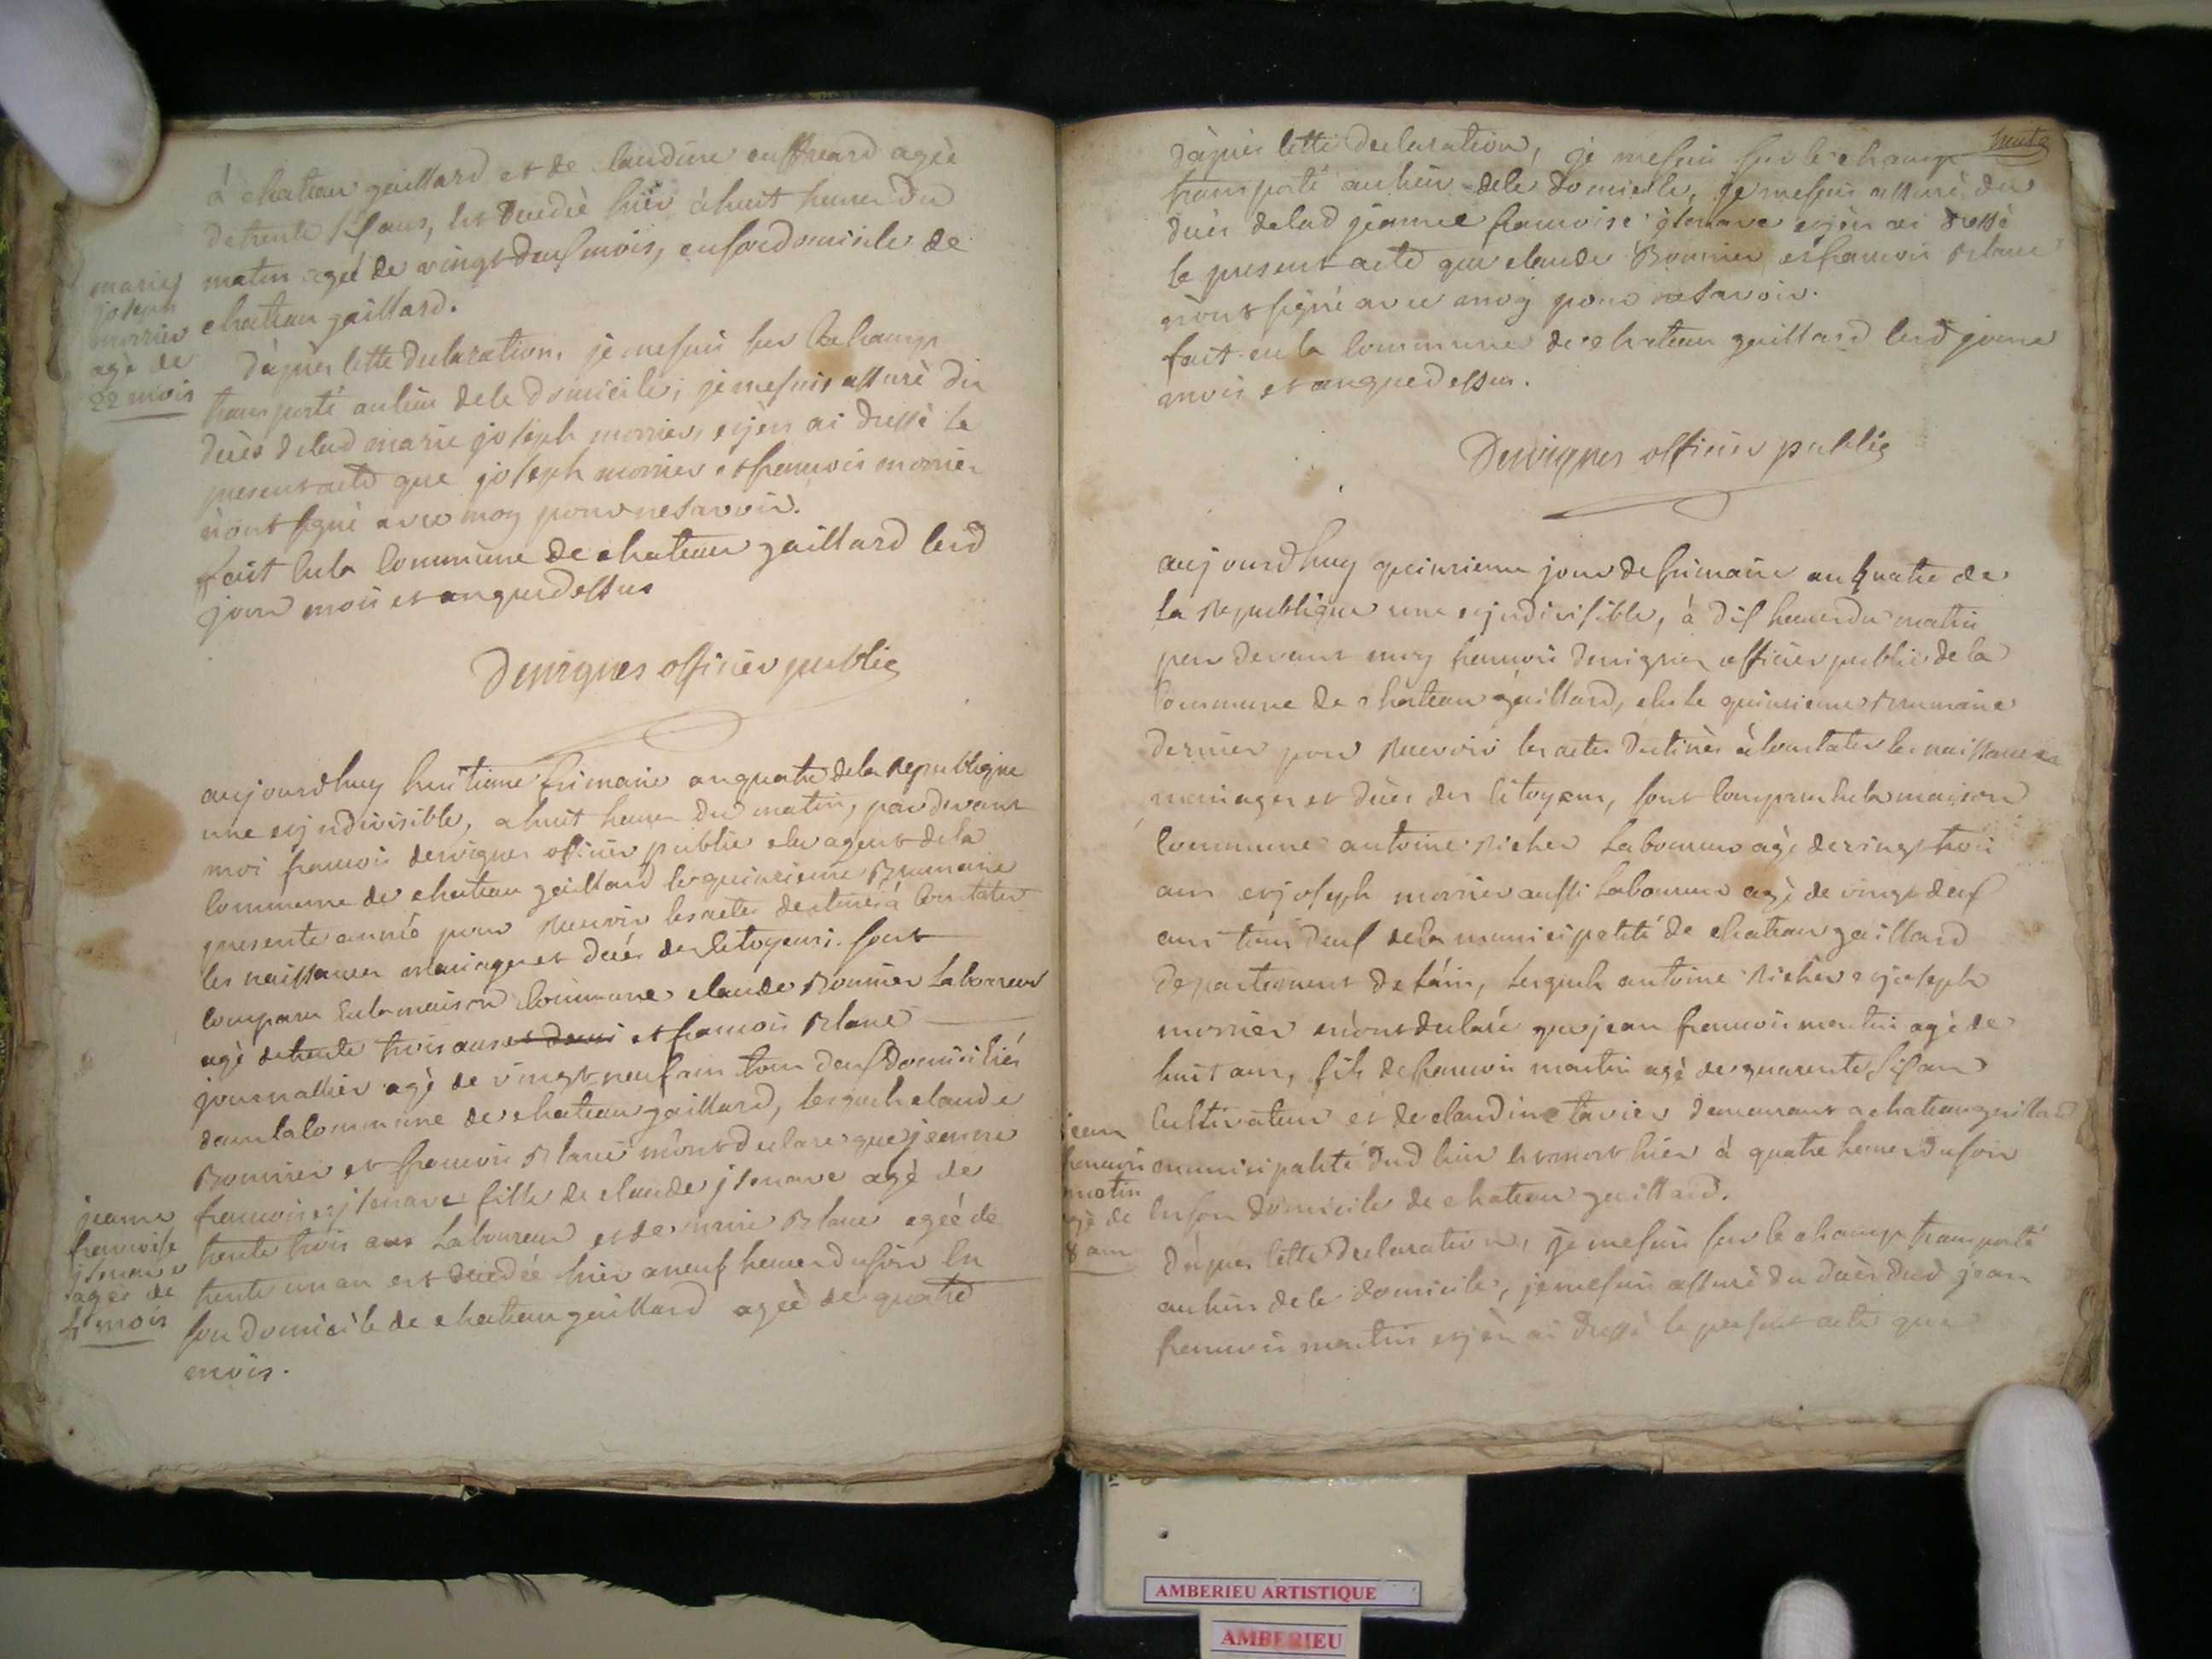 à chateau gaillard et de laudine cuffreard agèè
detrente six ans, est decedè hièr à huit heures du
matin ageé de vingt deux mois, en son domicile de
chateau gaillard.
marie
joseph
morrier
agè de
22 mois
d'après cette declaration, je me suis sur le champ
transporté au lieu de le domicile, je me suis assurè du
decès delad marie joseph morrier, et j'en ai dressè le
present acte que joseph morrier et francois morrier
n'ont signè avec moy pour ne savoir.
fait en la commune de chateau gaillard lesd
jour mois et an que dessus
Desvignes officier public
aujourdhuy huitieme frimaire an quatre de la republique
une et jndivisible, a huit heures du matin, par devant
moi francois desvignes officier public elu agent de la
commune de chateau gaillard le quinzieme Brumaire
presente année pour recevoir les actes destinés à constater
les naissances mariages et decés des citoyens, sont
comparu en la maison commune claude Bonnier laboureur
agè de trente trois ans et demi et francois Blanc
journallier agè de vingt neuf ans tous deux domiciliés
dans la commune de chateau gaillard, lesquels claude
Bonnier et francois Blanc m'ont declare que jeanne
francoise jtenare fille de claude jtenare agè de
trente trois ans laboureur et de marie Blanc ageé de
trente un an est decedée hier a neuf heures du soir en
son domicile de chateau gaillard ageè de quatre
mois.
jeanne
francoise
jtenare
ageè de
4 mois
huite
d'après cette declaration, je me suis sur le champ
transporté au lieu de le domicile, je me suis assurè du
decès de lad jeanne francoise jtenare et j'en ai dressè
le present acte que claude Bonnier et francois Blanc
n'ont signé avec moy pour ne savoir.
fait en la commune de chateau gaillard lesd jours
mois et an que dessus.
Desvignes officier public
aujourdhuy quinzieme jour de frimaire an quatre de
la Republique une et jndivisible, à dix heures du matin
par devant moy francois desvignes officier public de la
commune de chateau gaillard, elu le quinzieme Brumaire
dernier pour recevoir les actes destinès à constater les naissances
mariages et decès des citoyens, sont comparu en la maison
commune antoine Richer laboureur agè de vingt trois
ans et joseph morrier aussi laboureur agè de vingt deux
ans tous deux de la municipalité de chateau gaillard
departement de l'ain, lesquels antoine Richer et joseph
morrier m'ont declaré que jean francois martin agè de
huit ans, fils de francois martin agè de quarente six ans
cultivateur et de claudine tavier demeurant a chateau gaillard
municipalité dud lieu est mort hier à quatre heures du soir
en son domicile de chateau gaillard.
jean
francois
martin
agè de
8 ans
d'apres cette declaration, je me suis sur le champ transporté
au lieu de le domicile, je me suis assurè du decès dud jean
francois martin et j'en ai dressè le present acte que
AMBERIEU ARTISTIQUE
AMBERIEU